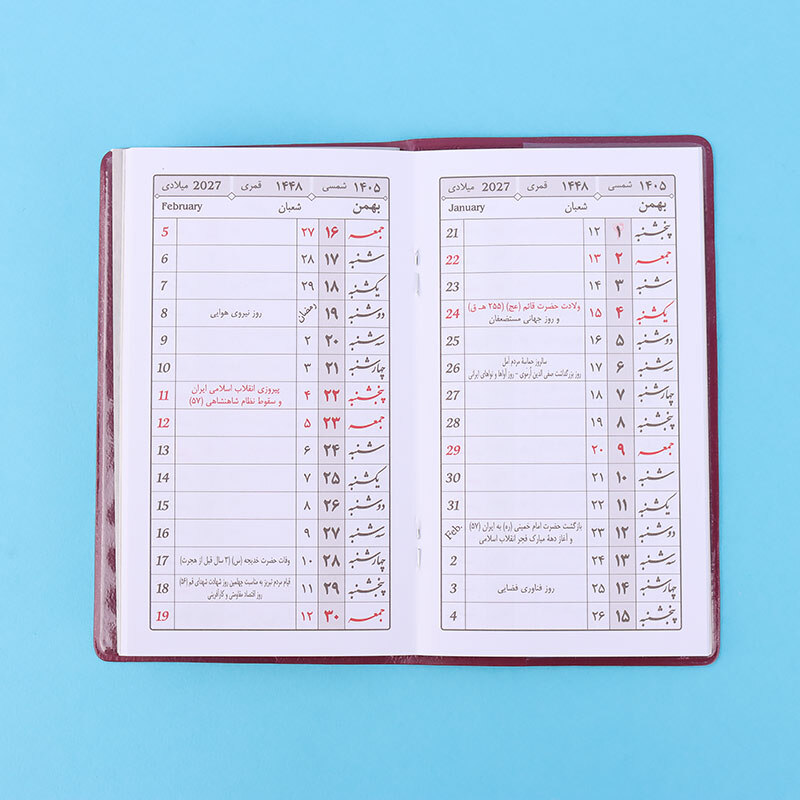 ۱۴۰۵ شمسی ۱۴۴۸ قمری 2027 میلادی
بهمن شعبان January
پنجشنبه ۱ ۱۲ 21
جمعه ۲ ۱۳ 22
شنبه ۳ ۱۴ 23
یکشنبه ۴ ۱۵ ولادت حضرت قائم (عج) (۲۵۵ هـ ق) 24
و روز جهانی مستضعفان
دوشنبه ۵ ۱۶ 25
سه شنبه ۶ ۱۷ سالروز حماسهٔ مردم آمل 26
روز بزرگداشت صفی الدین اُرمَوی - روز آواها و نواهای ایرانی
چهارشنبه ۷ ۱۸ 27
پنجشنبه ۸ ۱۹ 28
جمعه ۹ ۲۰ 29
شنبه ۱۰ ۲۱ 30
یکشنبه ۱۱ ۲۲ 31
دوشنبه ۱۲ ۲۳ بازگشت حضرت امام خمینی (ره) به ایران (۵۷) Feb.
و آغاز دههٔ مبارک فجر انقلاب اسلامی
سه شنبه ۱۳ ۲۴ 2
چهارشنبه ۱۴ ۲۵ روز فناوری فضایی 3
پنجشنبه ۱۵ ۲۶ 4
۱۴۰۵ شمسی ۱۴۴۸ قمری 2027 میلادی
بهمن شعبان February
جمعه ۱۶ ۲۷ 5
شنبه ۱۷ ۲۸ 6
یکشنبه ۱۸ ۲۹ 7
دوشنبه ۱۹ رمضان روز نیروی هوایی 8
سه شنبه ۲۰ ۲ 9
چهارشنبه ۲۱ ۳ 10
پنجشنبه ۲۲ ۴ پیروزی انقلاب اسلامی ایران 11
و سقوط نظام شاهنشاهی (۵۷)
جمعه ۲۳ ۵ 12
شنبه ۲۴ ۶ 13
یکشنبه ۲۵ ۷ 14
دوشنبه ۲۶ ۸ 15
سه شنبه ۲۷ ۹ 16
چهارشنبه ۲۸ ۱۰ وفات حضرت خدیجه (س) (۳ سال قبل از هجرت) 17
پنجشنبه ۲۹ ۱۱ قیام مردم تبریز به مناسبت چهلمین روز شهادت شهدای قم (۵۶) 18
روز اقتصاد مقاومتی و کارآفرینی
جمعه ۳۰ ۱۲ 19